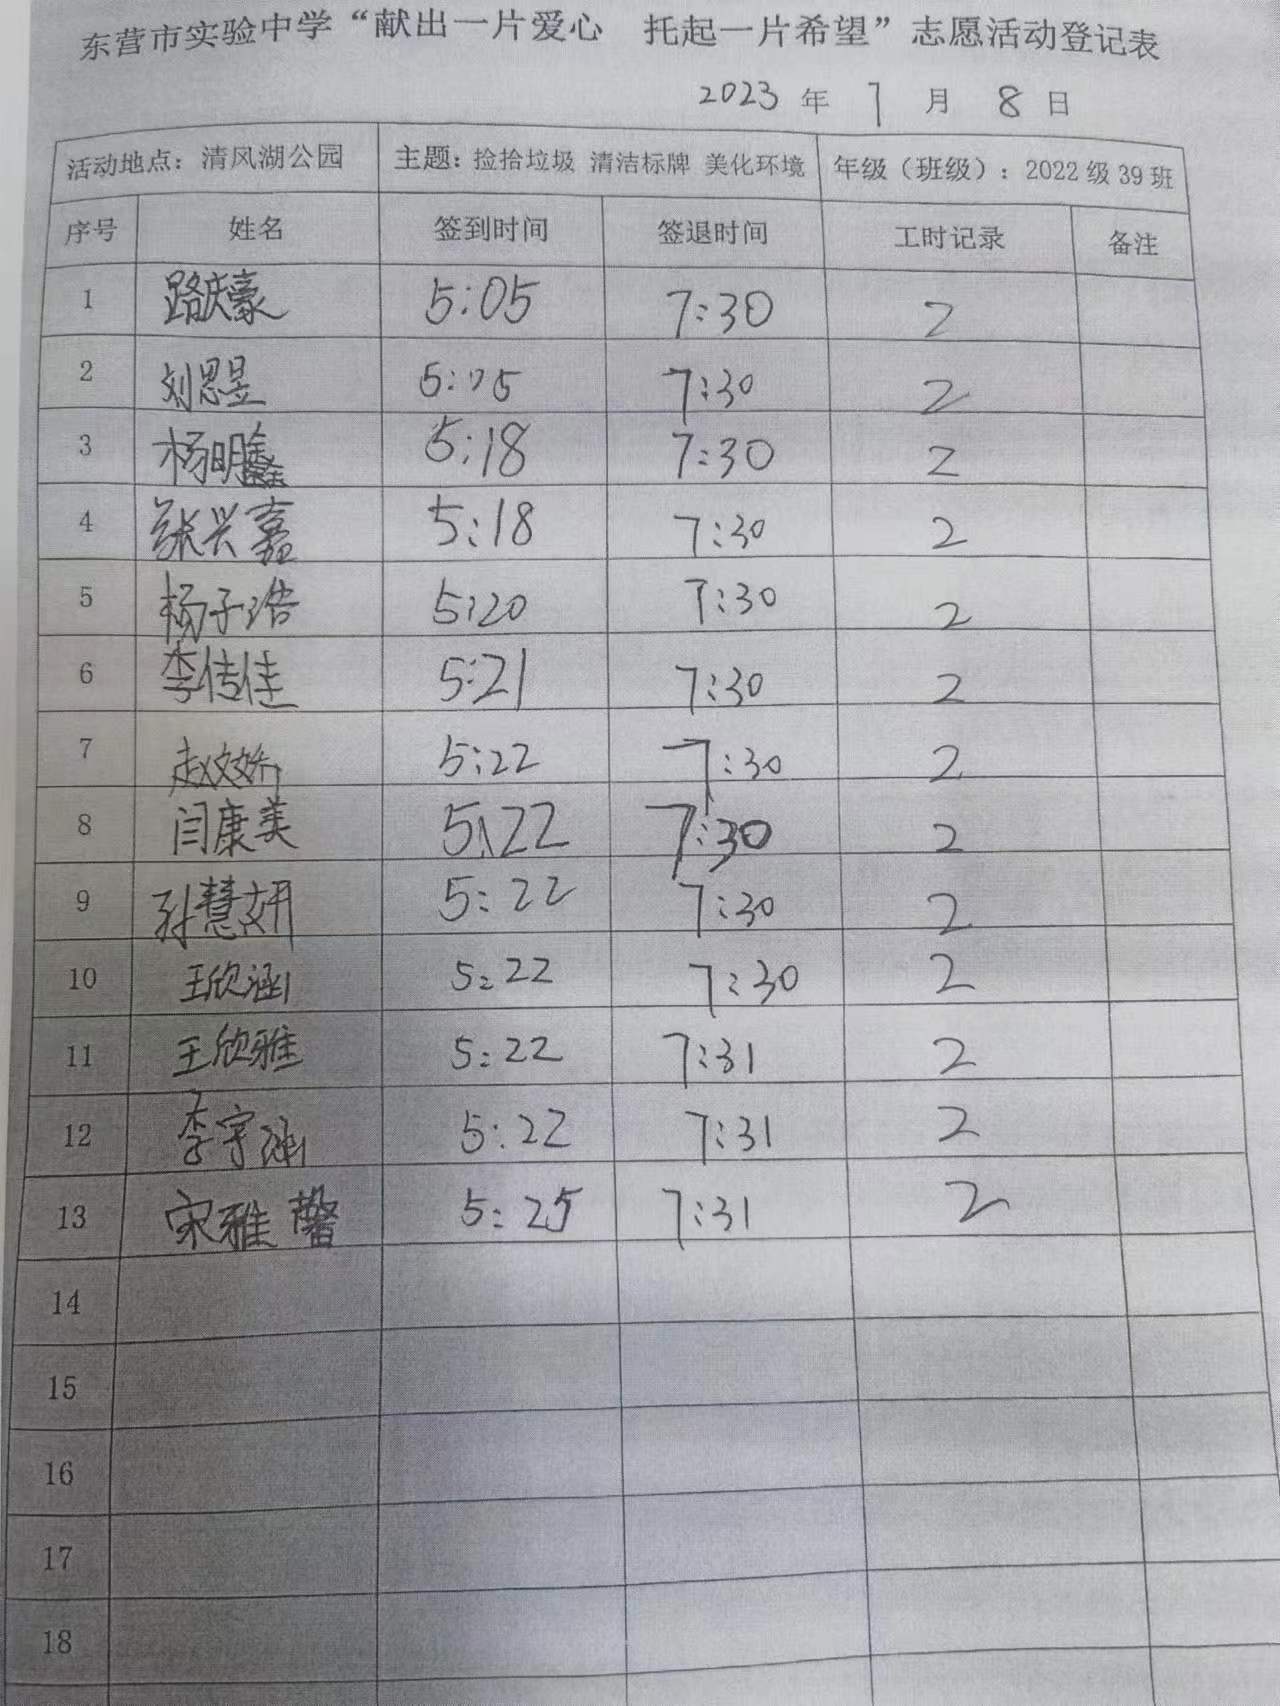 东营市实验中学“献出一片爱心 托起一片希望”志愿活动登记表
2023 年 7 月 8 日
活动地点：清风湖公园 主题：捡拾垃圾 清洁标牌 美化环境 年级（班级）：2022 级 39 班
序号 姓名 签到时间 签退时间 工时记录 备注
1 路庆豪 5:05 7:30 2
2 刘思昱 5:05 7:30 2
3 杨明鑫 5:18 7:30 2
4 张兴嘉 5:18 7:30 2
5 杨子浩 5:20 7:30 2
6 李传佳 5:21 7:30 2
7 赵姣娇 5:22 7:30 2
8 闫康美 5:22 7:30 2
9 孙慧妍 5:22 7:30 2
10 王欣涵 5:22 7:30 2
11 王欣雅 5:22 7:31 2
12 李宇涵 5:22 7:31 2
13 宋雅馨 5:25 7:31 2
14
15
16
17
18